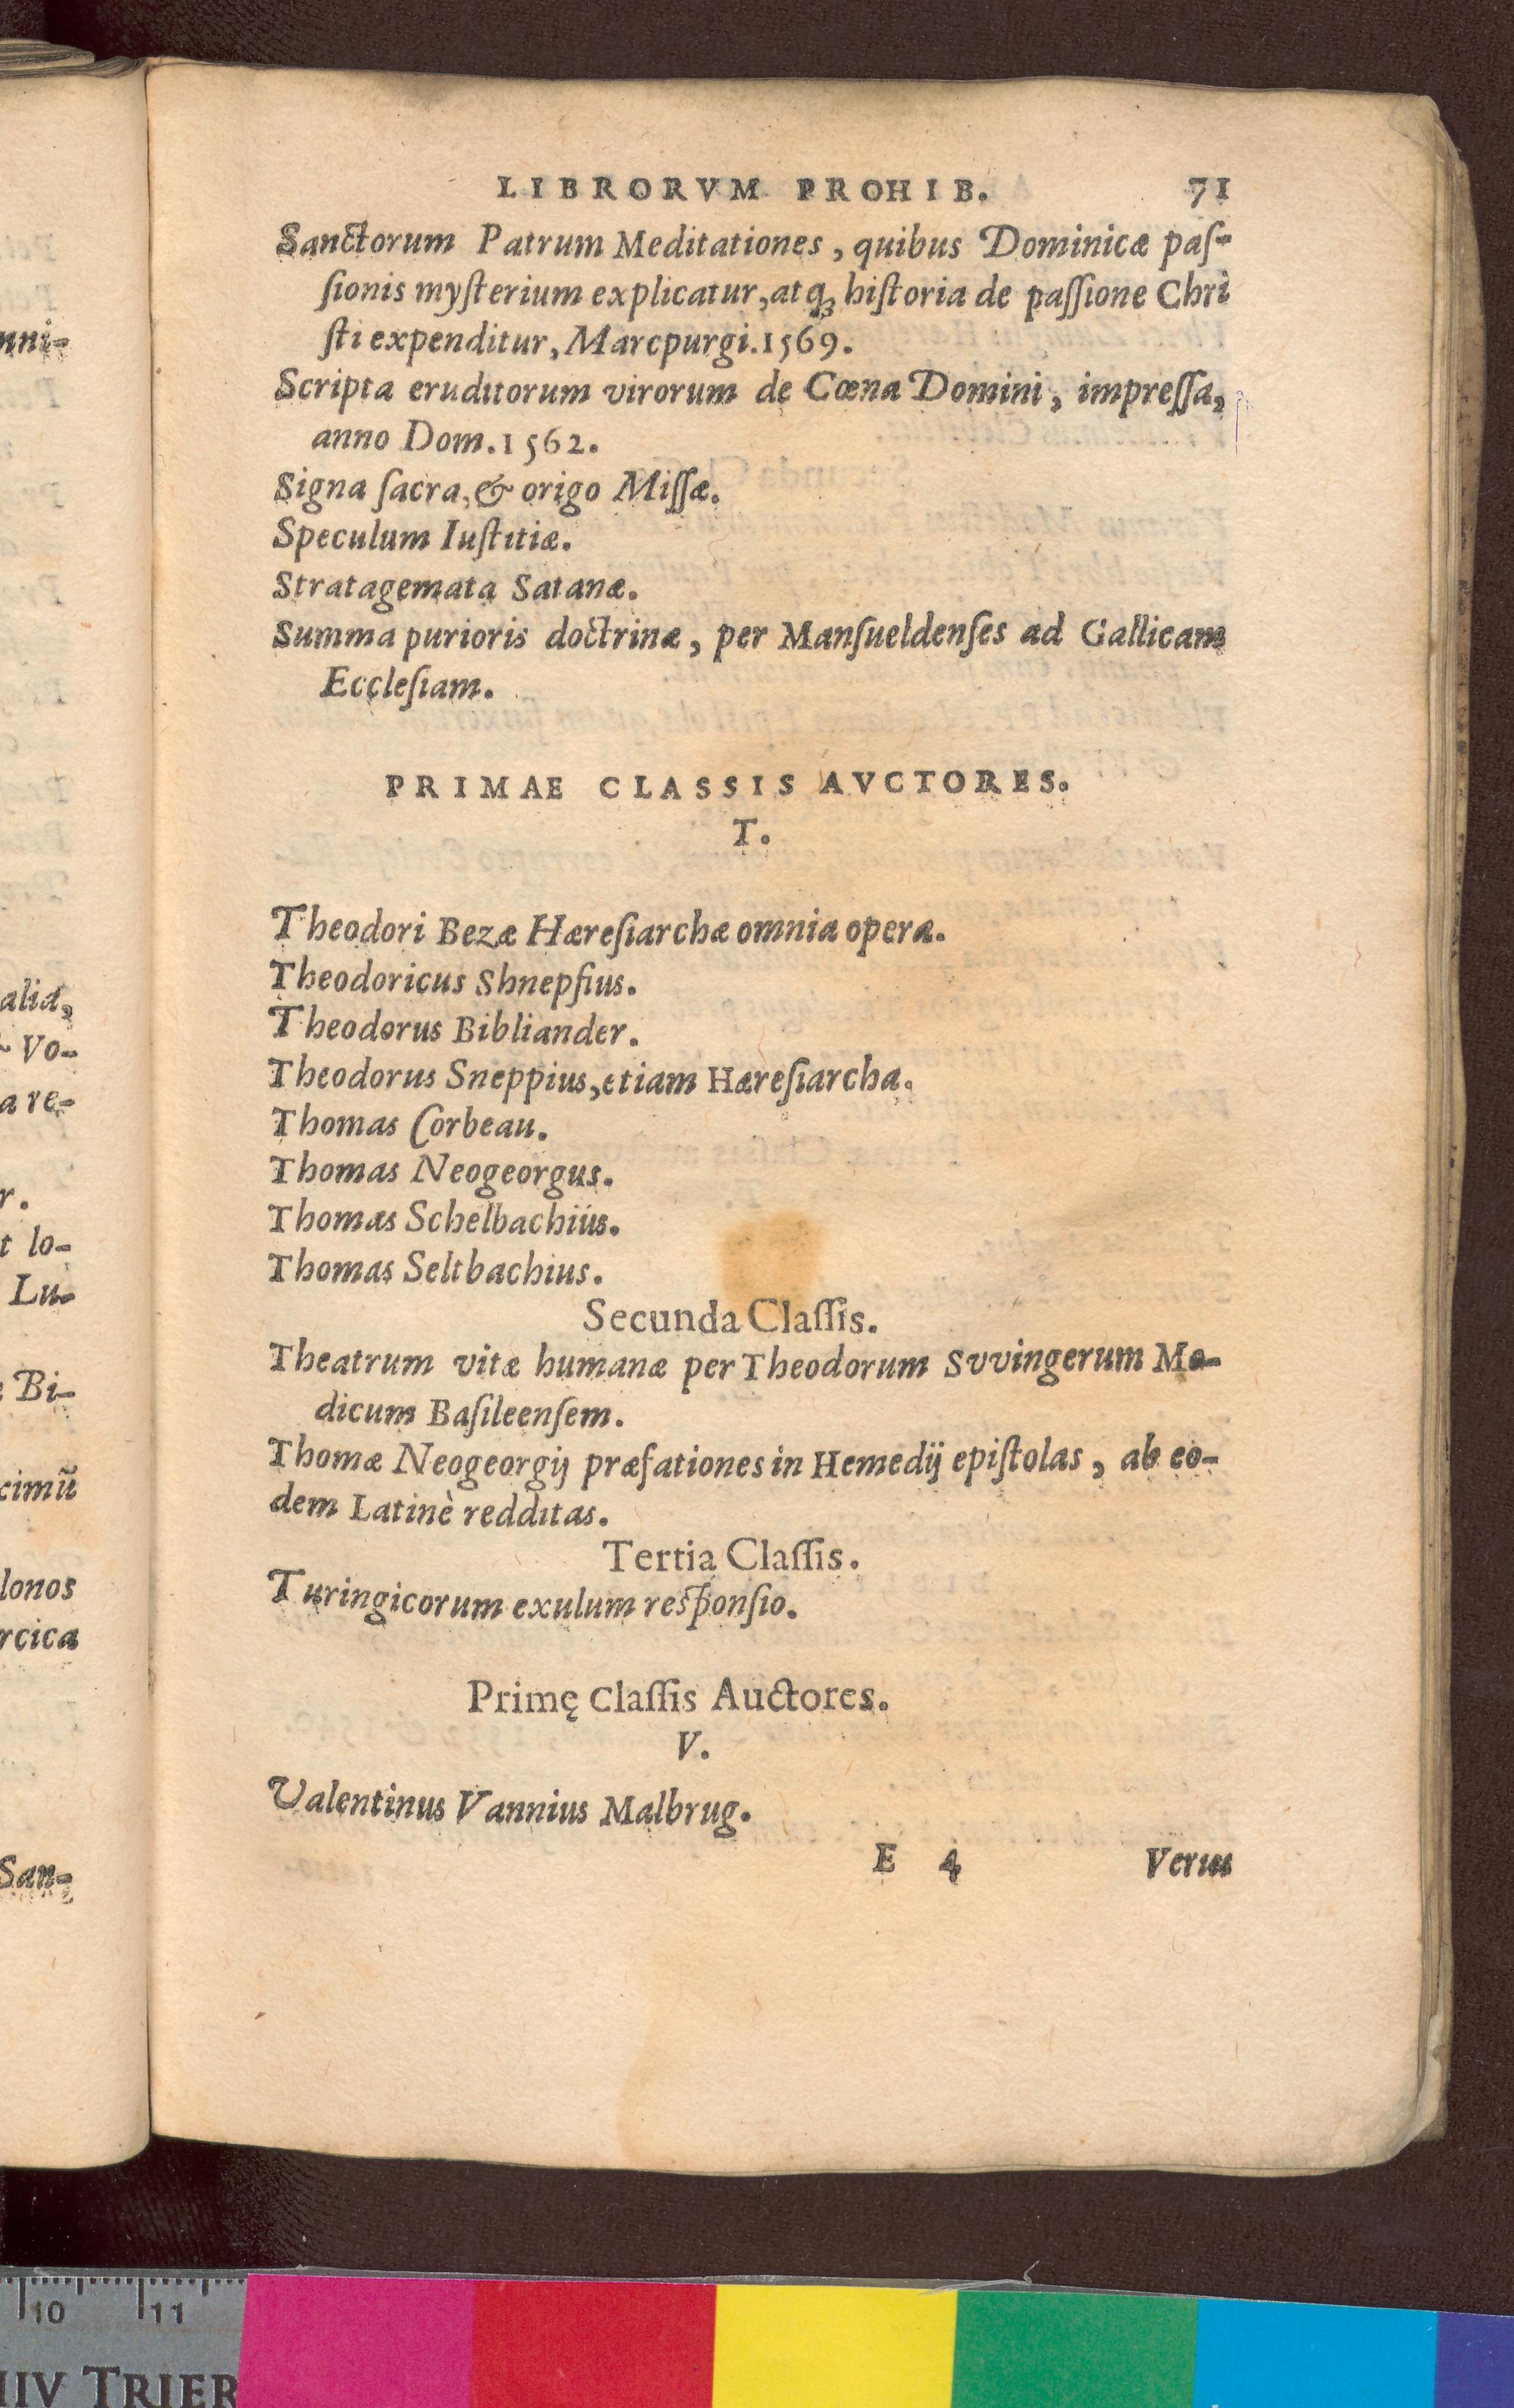 LIBRORVM PROHIB. 71
Sanctorum Patrum Meditationes, quibus Dominicæ paſ-
ſionis myſterium explicatur, atq; hiſtoria de paſſione Chri
ſti expenditur, Marcpurgi. 1569.
Scripta eruditorum virorum de Cœna Domini, impreſſa,
anno Dom. 1562.
Signa ſacra, & origo Miſſæ.
Speculum Iuſtitiæ.
Stratagemata Satanæ.
Summa purioris doctrinæ, per Manſueldenſes ad Gallicam
Eccleſiam.
PRIMAE CLASSIS AVCTORES.
T.
Theodori Bezæ Hæreſiarchæ omnia opera.
Theodoricus Shnepfius.
Theodorus Bibliander.
Theodorus Sneppius, etiam Hæreſiarcha.
Thomas Corbeau.
Thomas Neogeorgus.
Thomas Schelbachiùs.
Thomas Seltbachius.
Secunda Claſſis.
Theatrum vitæ humanæ per Theodorum Svvingerum Me-
dicum Baſileenſem.
Thomæ Neogeorgij præfationes in Hemedij epiſtolas, ab eo-
dem Latinè redditas.
Tertia Claſſis.
Turingicorum exulum reſponſio.
Primę Claſſis Auctores.
V.
Valentinus Vannius Malbrug.
E 4 Verus
nni-
alia,
Vo-
a re-
r.
t lo-
Lu-
Bi-
cimũ
lonos
rcica
San-
10 11
IIV TRIER